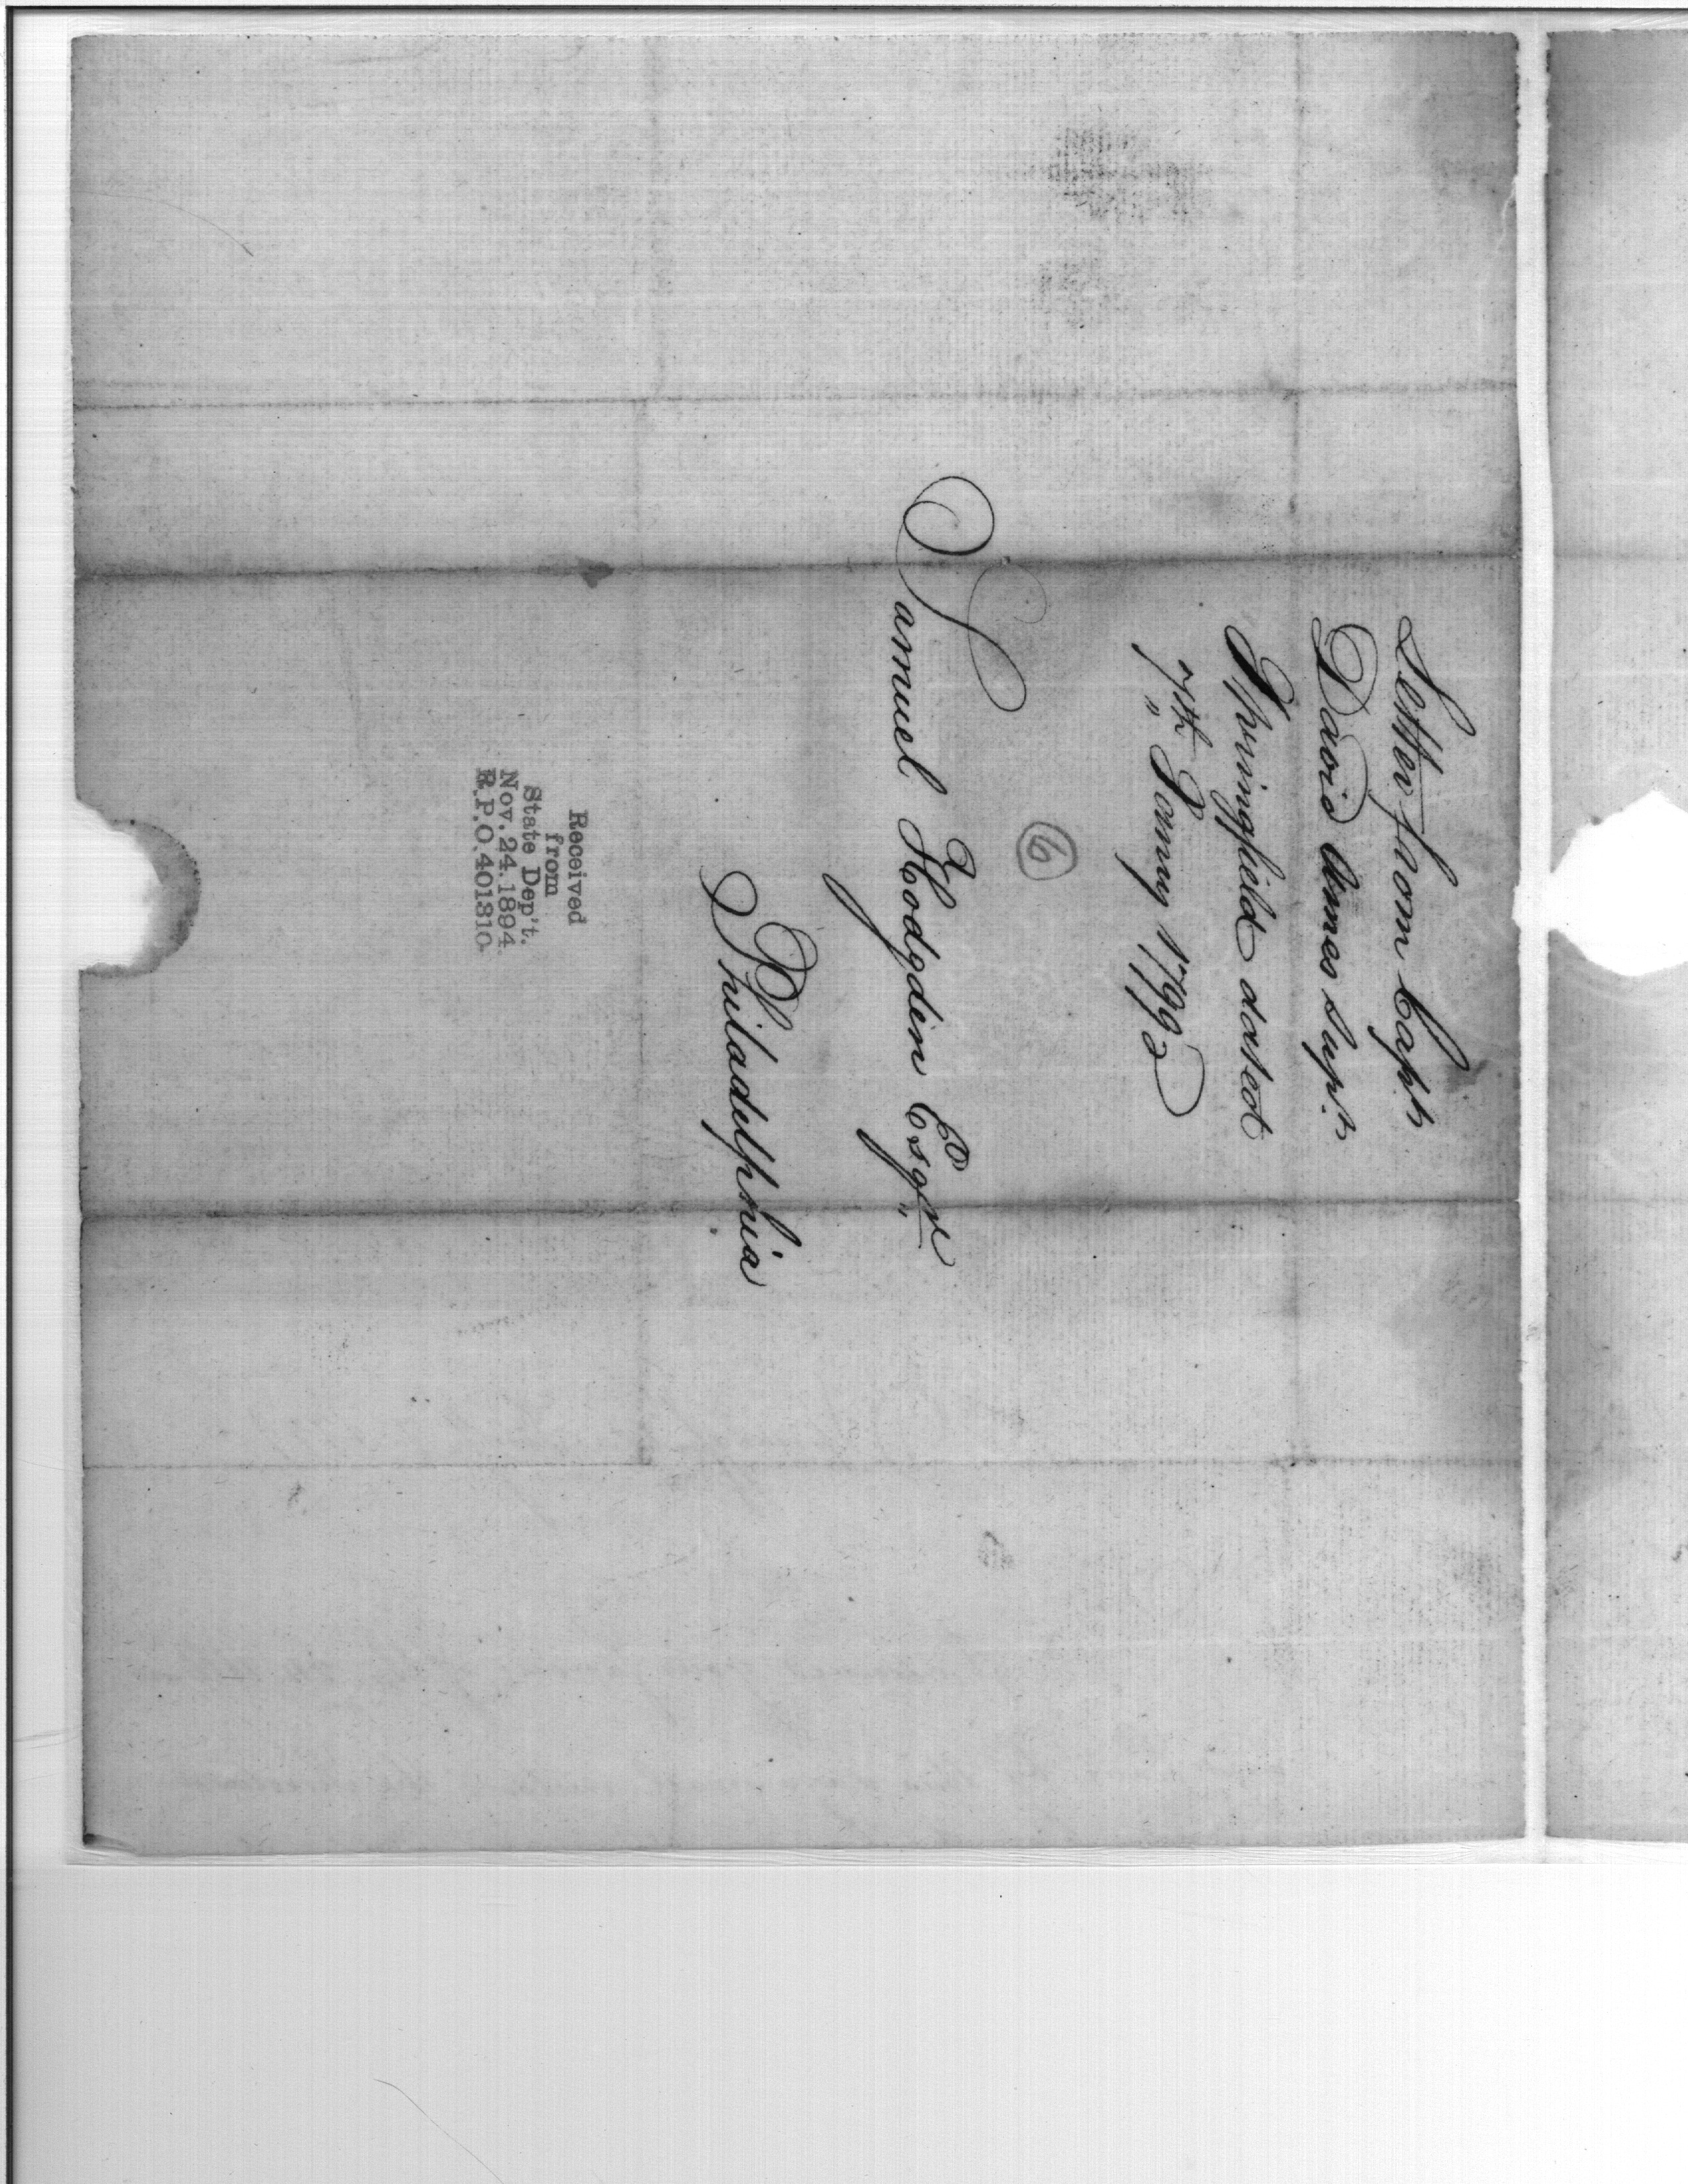 Letter from Capt
David Ames Supt
Springfield dated
7th Janny 1792
6
Samuel Hodgdon Esqr
Philadelphia
Received
from
State Dep't.
Nov. 24. 1894.
R.P.O. 401310.